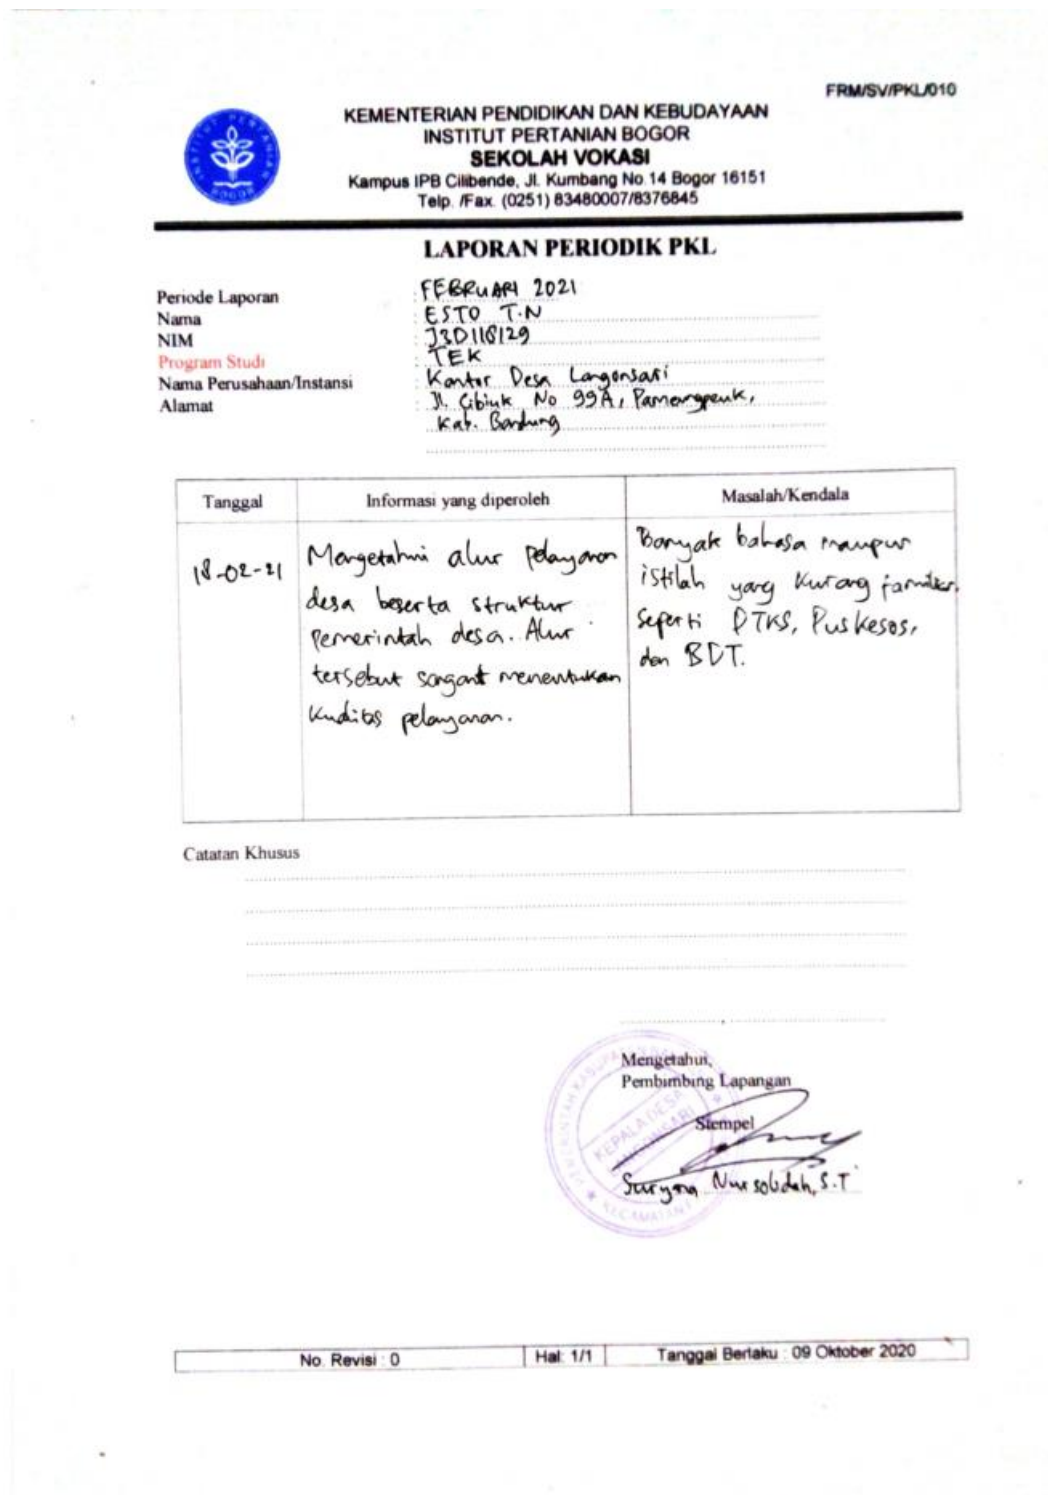 FRM/SV/PKL/010
KEMENTERIAN PENDIDIKAN DAN KEBUDAYAAN
INSTITUT PERTANIAN BOGOR
SEKOLAH VOKASI
Kampus IPB Cilibende, Jl. Kumbang No.14 Bogor 16151
Telp. /Fax. (0251) 83480007/8376845
INSTITUT PERTANIAN BOGOR
LAPORAN PERIODIK PKL
Periode Laporan : FEBRUARI 2021
Nama : ESTO T.N
NIM : J3D118129
Program Studi : TEK
Nama Perusahaan/Instansi : Kantor Desa Langonsari
Alamat : Jl. Cibiuk No 99A, Pameungpeuk,
Kab. Bandung
Tanggal Informasi yang diperoleh Masalah/Kendala
18-02-21
Mengetahui alur pelayanan
desa beserta struktur
pemerintah desa. Alur
tersebut sangat menentukan
kualitas pelayanan.
Banyak bahasa maupun
istilah yang kurang familiar,
seperti DTKS, Puskesos,
dan BDT.
Catatan Khusus
Mengetahui,
Pembimbing Lapangan
Stempel
KEPALA DESA
LANGONSARI
KECAMATAN
Suryana Nursolidah, S.T
No. Revisi : 0 Hal: 1/1 Tanggal Berlaku : 09 Oktober 2020